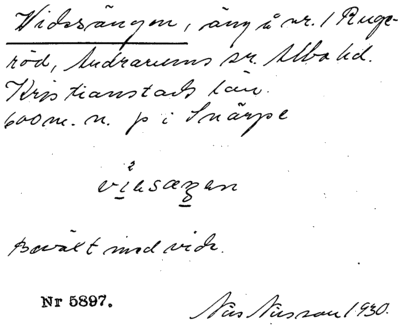 Videsängen, äng å nr. 1 Ruge-
röd, Andrarums sn. Albo hd.
Kristianstads län.
600 m. n. p i Snärpe
Beväxt med vide.
Nr 5897.
Nils Nilsson 1930.